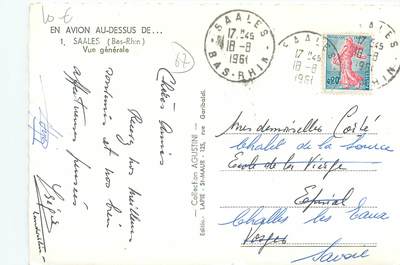 10 €
EN AVION AU-DESSUS DE...
1. SAALES (Bas-Rhin)
Vue générale
67
SAALES
17 H 45
18-8
1961
BAS-RHIN
SAALES
17 H 45
18-8
1961
BAS-RHIN
Chères Amies
Recevez nos meilleurs
souvenirs et nos bien
affectueuses pensées
— Collection AGUSTINI —
Editio- LAPIE - ST-MAUR - 125, rue Garibaldi
Mesdemoiselles
Chalet de la Source
Ecole de la Vierge
Epinal
Challes les Eaux
Vosges
Savoie